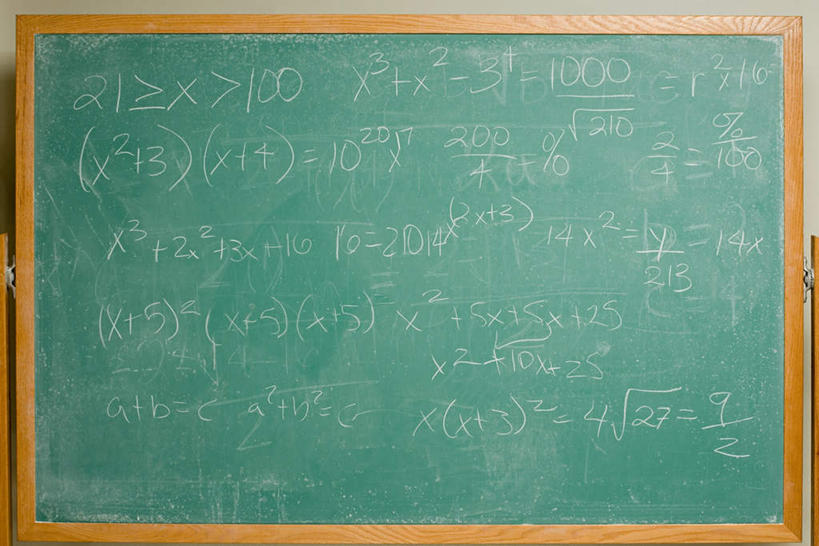 21 ≥ x > 100 x³ + x² - 3⁴ = 1000/√210 = r²x16
(x²+3)(x+4) = 10²⁰x⁷ 200/4 = % 2/4 = %/100
x³ + 2x² + 3x + 16 16 = 21014x⁽²ˣ⁺³⁾ 14x² = y/213 = 14x
(x+5)² (x+5)(x+5) x² + 5x + 5x + 25
x² + 10x + 25
a+b=c a²+b²=c x(x+3)² = 4√27 = 9/2